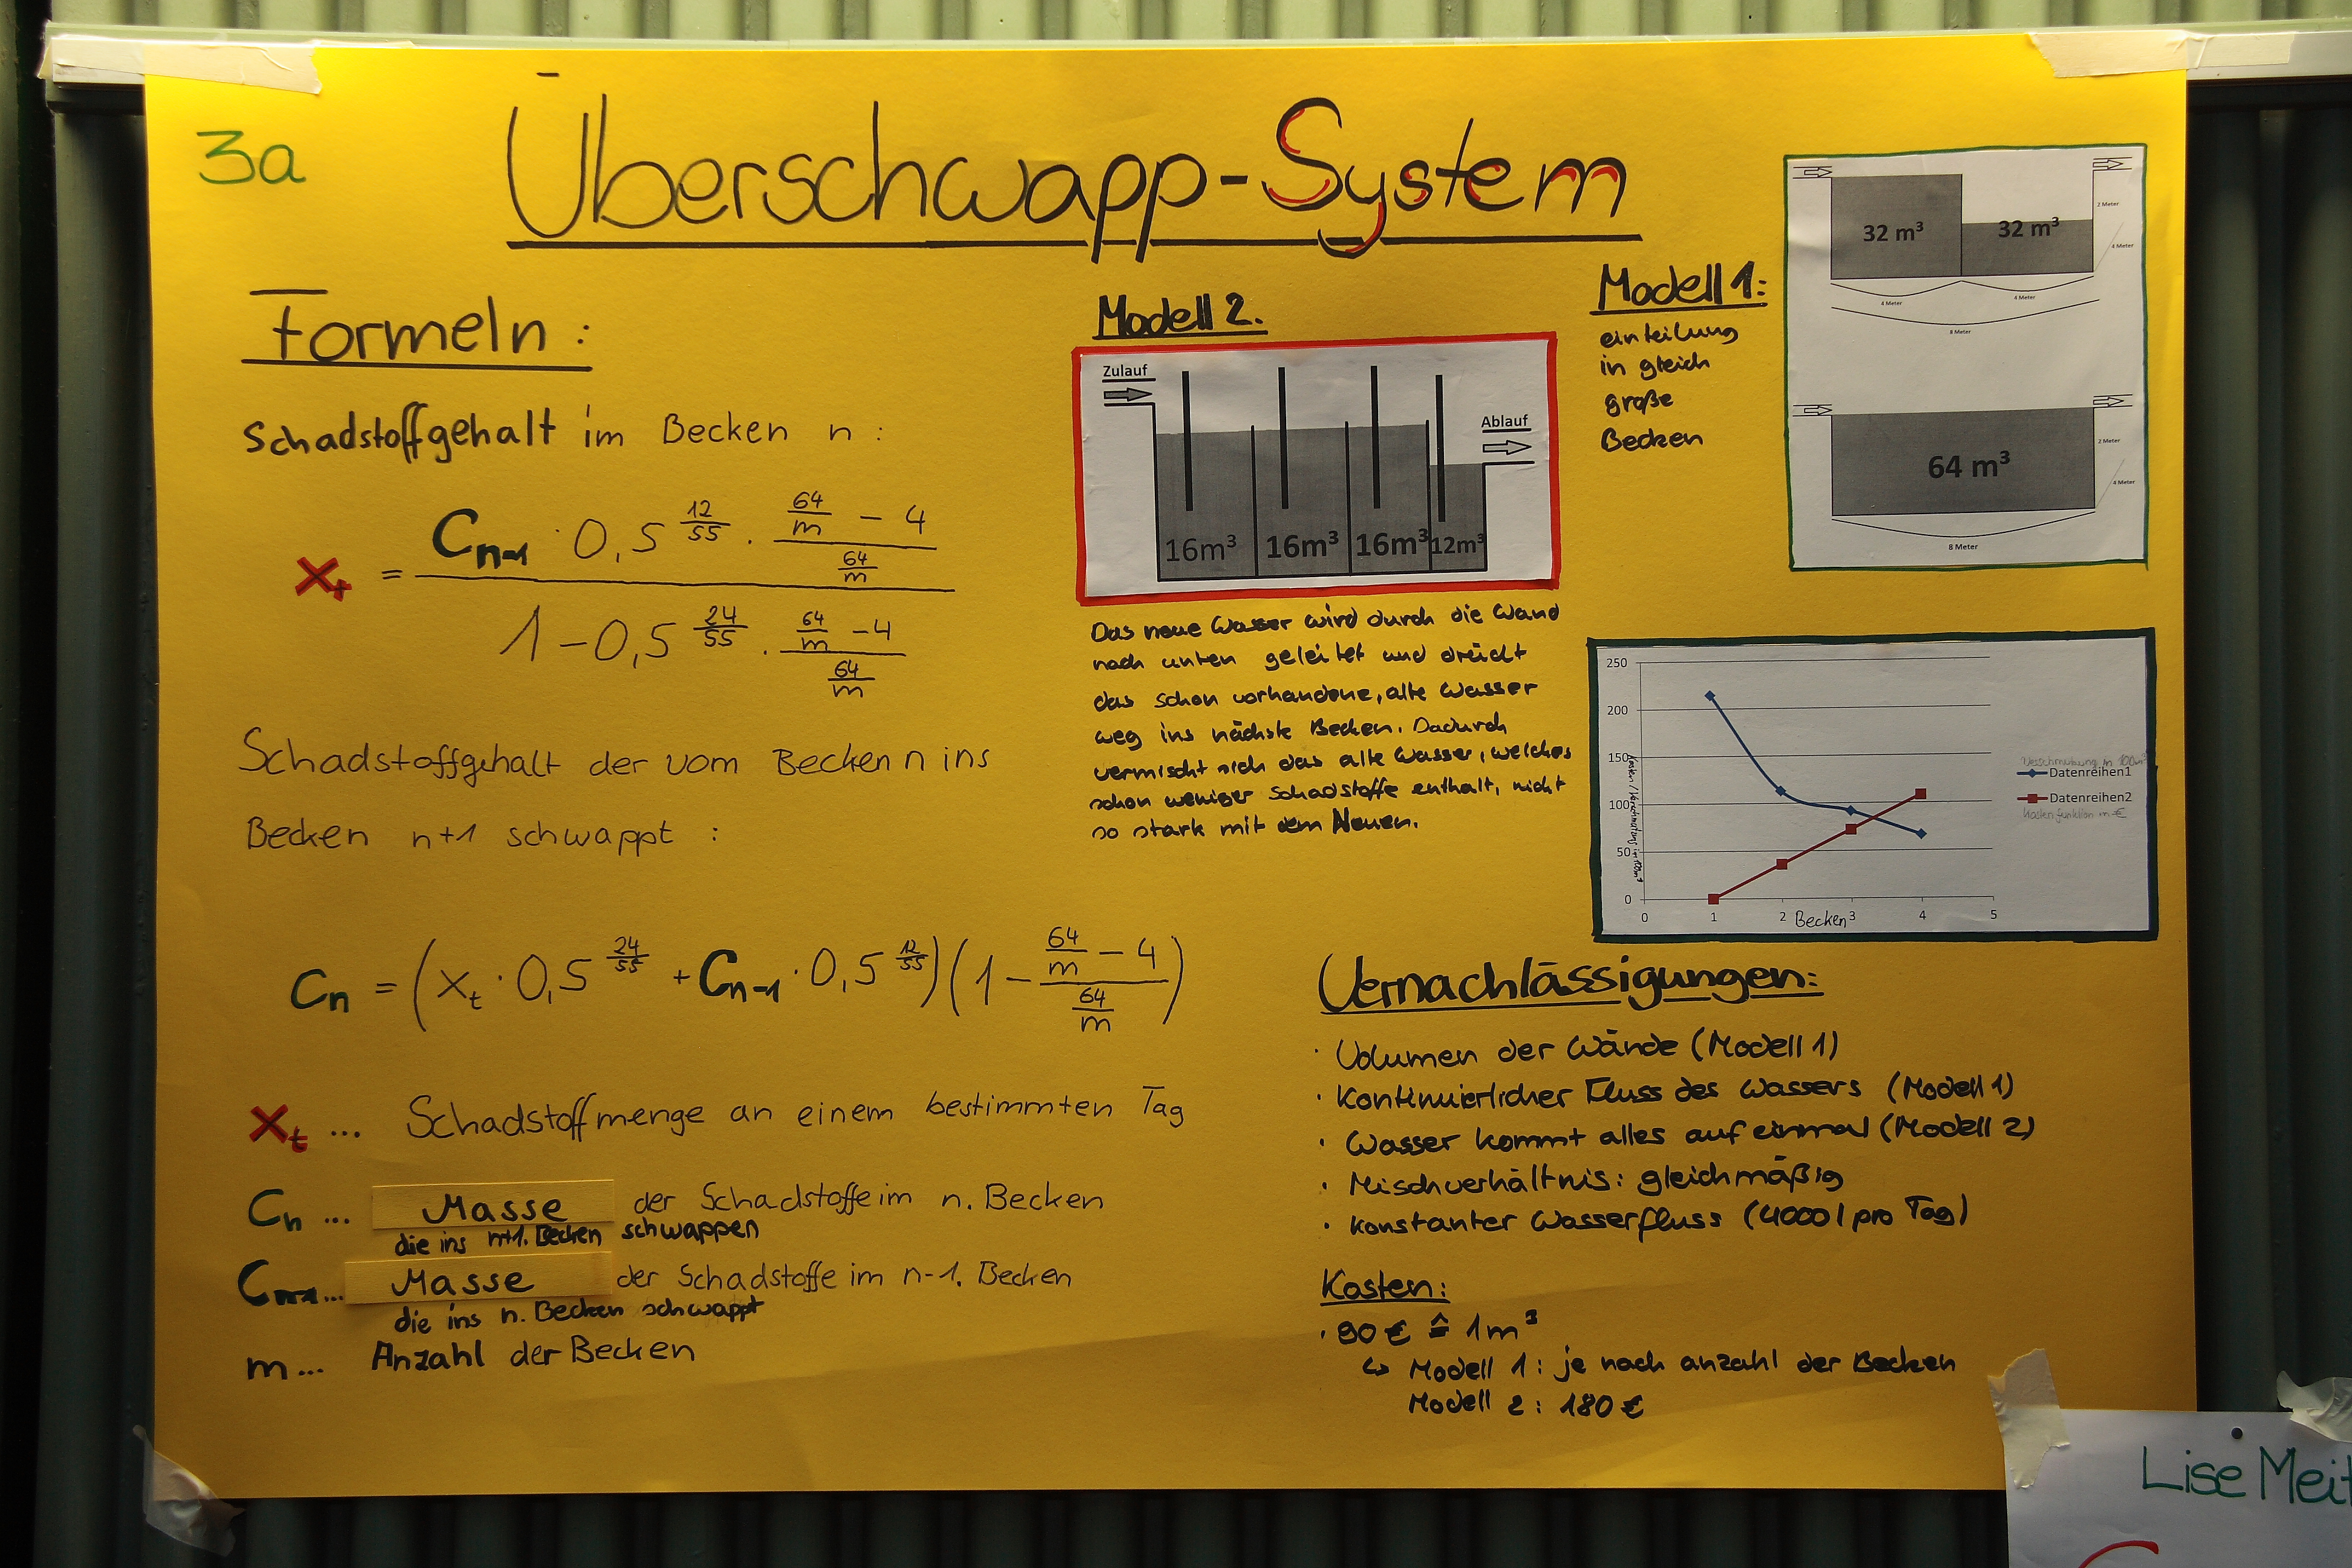 3a
Überschwapp-System
Formeln:
Schadstoffgehalt im Becken n:
x_t = (C_{n-1} · 0,5^{12/55} · (64/m - 4)/(64/m)) / (1 - 0,5^{24/55} · (64/m - 4)/(64/m))
Schadstoffgehalt der vom Becken n ins
Becken n+1 schwappt:
C_n = (x_t · 0,5^{24/55} + C_{n-1} · 0,5^{12/55})(1 - (64/m - 4)/(64/m))
x_t ... Schadstoffmenge an einem bestimmten Tag
C_n ... Masse der Schadstoffe im n. Becken
die ins n+1. Becken schwappen
C_{n-1} ... Masse der Schadstoffe im n-1. Becken
die ins n. Becken schwappt
m ... Anzahl der Becken
Modell 2.
Zulauf
Ablauf
16m³ 16m³ 16m³ 12m³
Das neue Wasser wird durch die Wand
nach unten geleitet und drückt
das schon vorhandene, alte Wasser
weg ins nächste Becken. Dadurch
vermischt sich das alte Wasser, welches
schon weniger Schadstoffe enthält, nicht
so stark mit dem Neuen.
Modell 1:
einteilung
in gleich
große
Becken
32 m³ 32 m³
2 Meter
4 Meter
4 Meter 4 Meter
8 Meter
64 m³
2 Meter
4 Meter
8 Meter
250
200
150
100
50
0
0 1 2 3 4 5
Becken
Datenreihen1
Datenreihen2
Kostenfunktion in €
Vernachlässigungen:
· Volumen der Wände (Modell 1)
· Kontinuierlicher Fluss des Wassers (Modell 1)
· Wasser kommt alles auf einmal (Modell 2)
· Mischverhältnis: gleichmäßig
· konstanter Wasserfluss (4000 l pro Tag)
Kosten:
· 90 € ≙ 1m³
↳ Modell 1: je nach anzahl der Becken
Modell 2: 180 €
Lise Meit